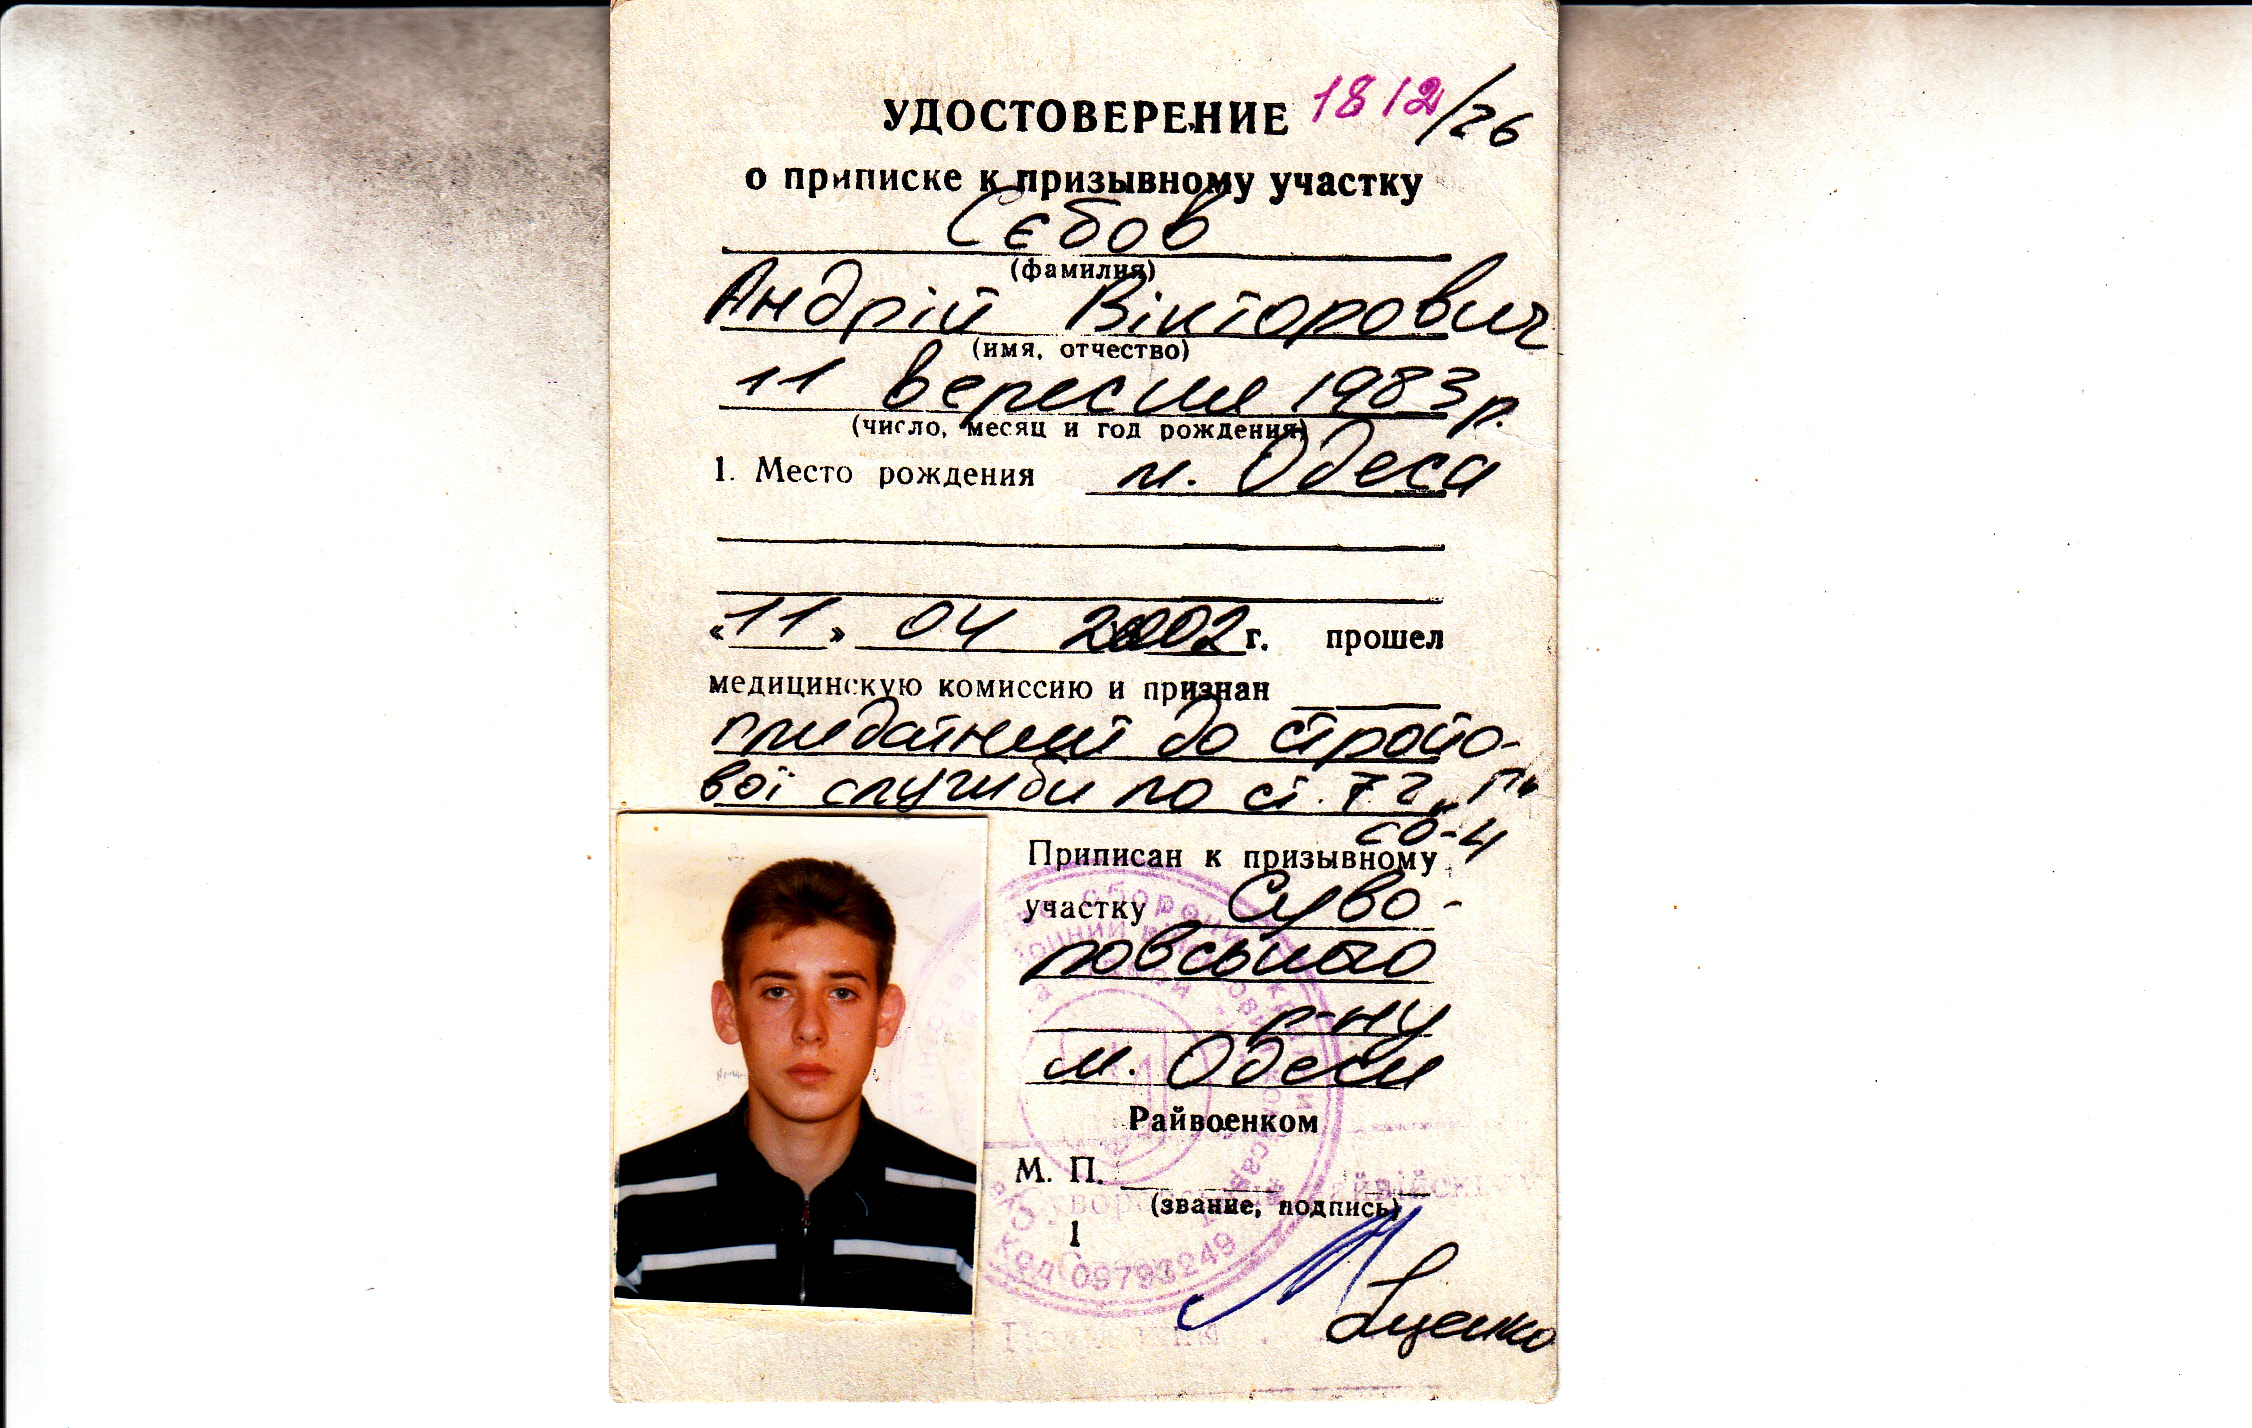 УДОСТОВЕРЕНИЕ 1812/26
о приписке к призывному участку
Сєбов
(фамилия)
Андрій Вікторович
(имя, отчество)
11 вересня 1983 р.
(число, месяц и год рождения)
1. Место рождения м. Одеса
«11» 04 2002 г. прошел
медицинскую комиссию и признан
придатний до стройо-
вої служби по ст. 7
Приписан к призывному
участку Суво-
ровського
р-ну
м. Одеси
Райвоенком
М. П.
(звание, подпись)
1
код 09793249